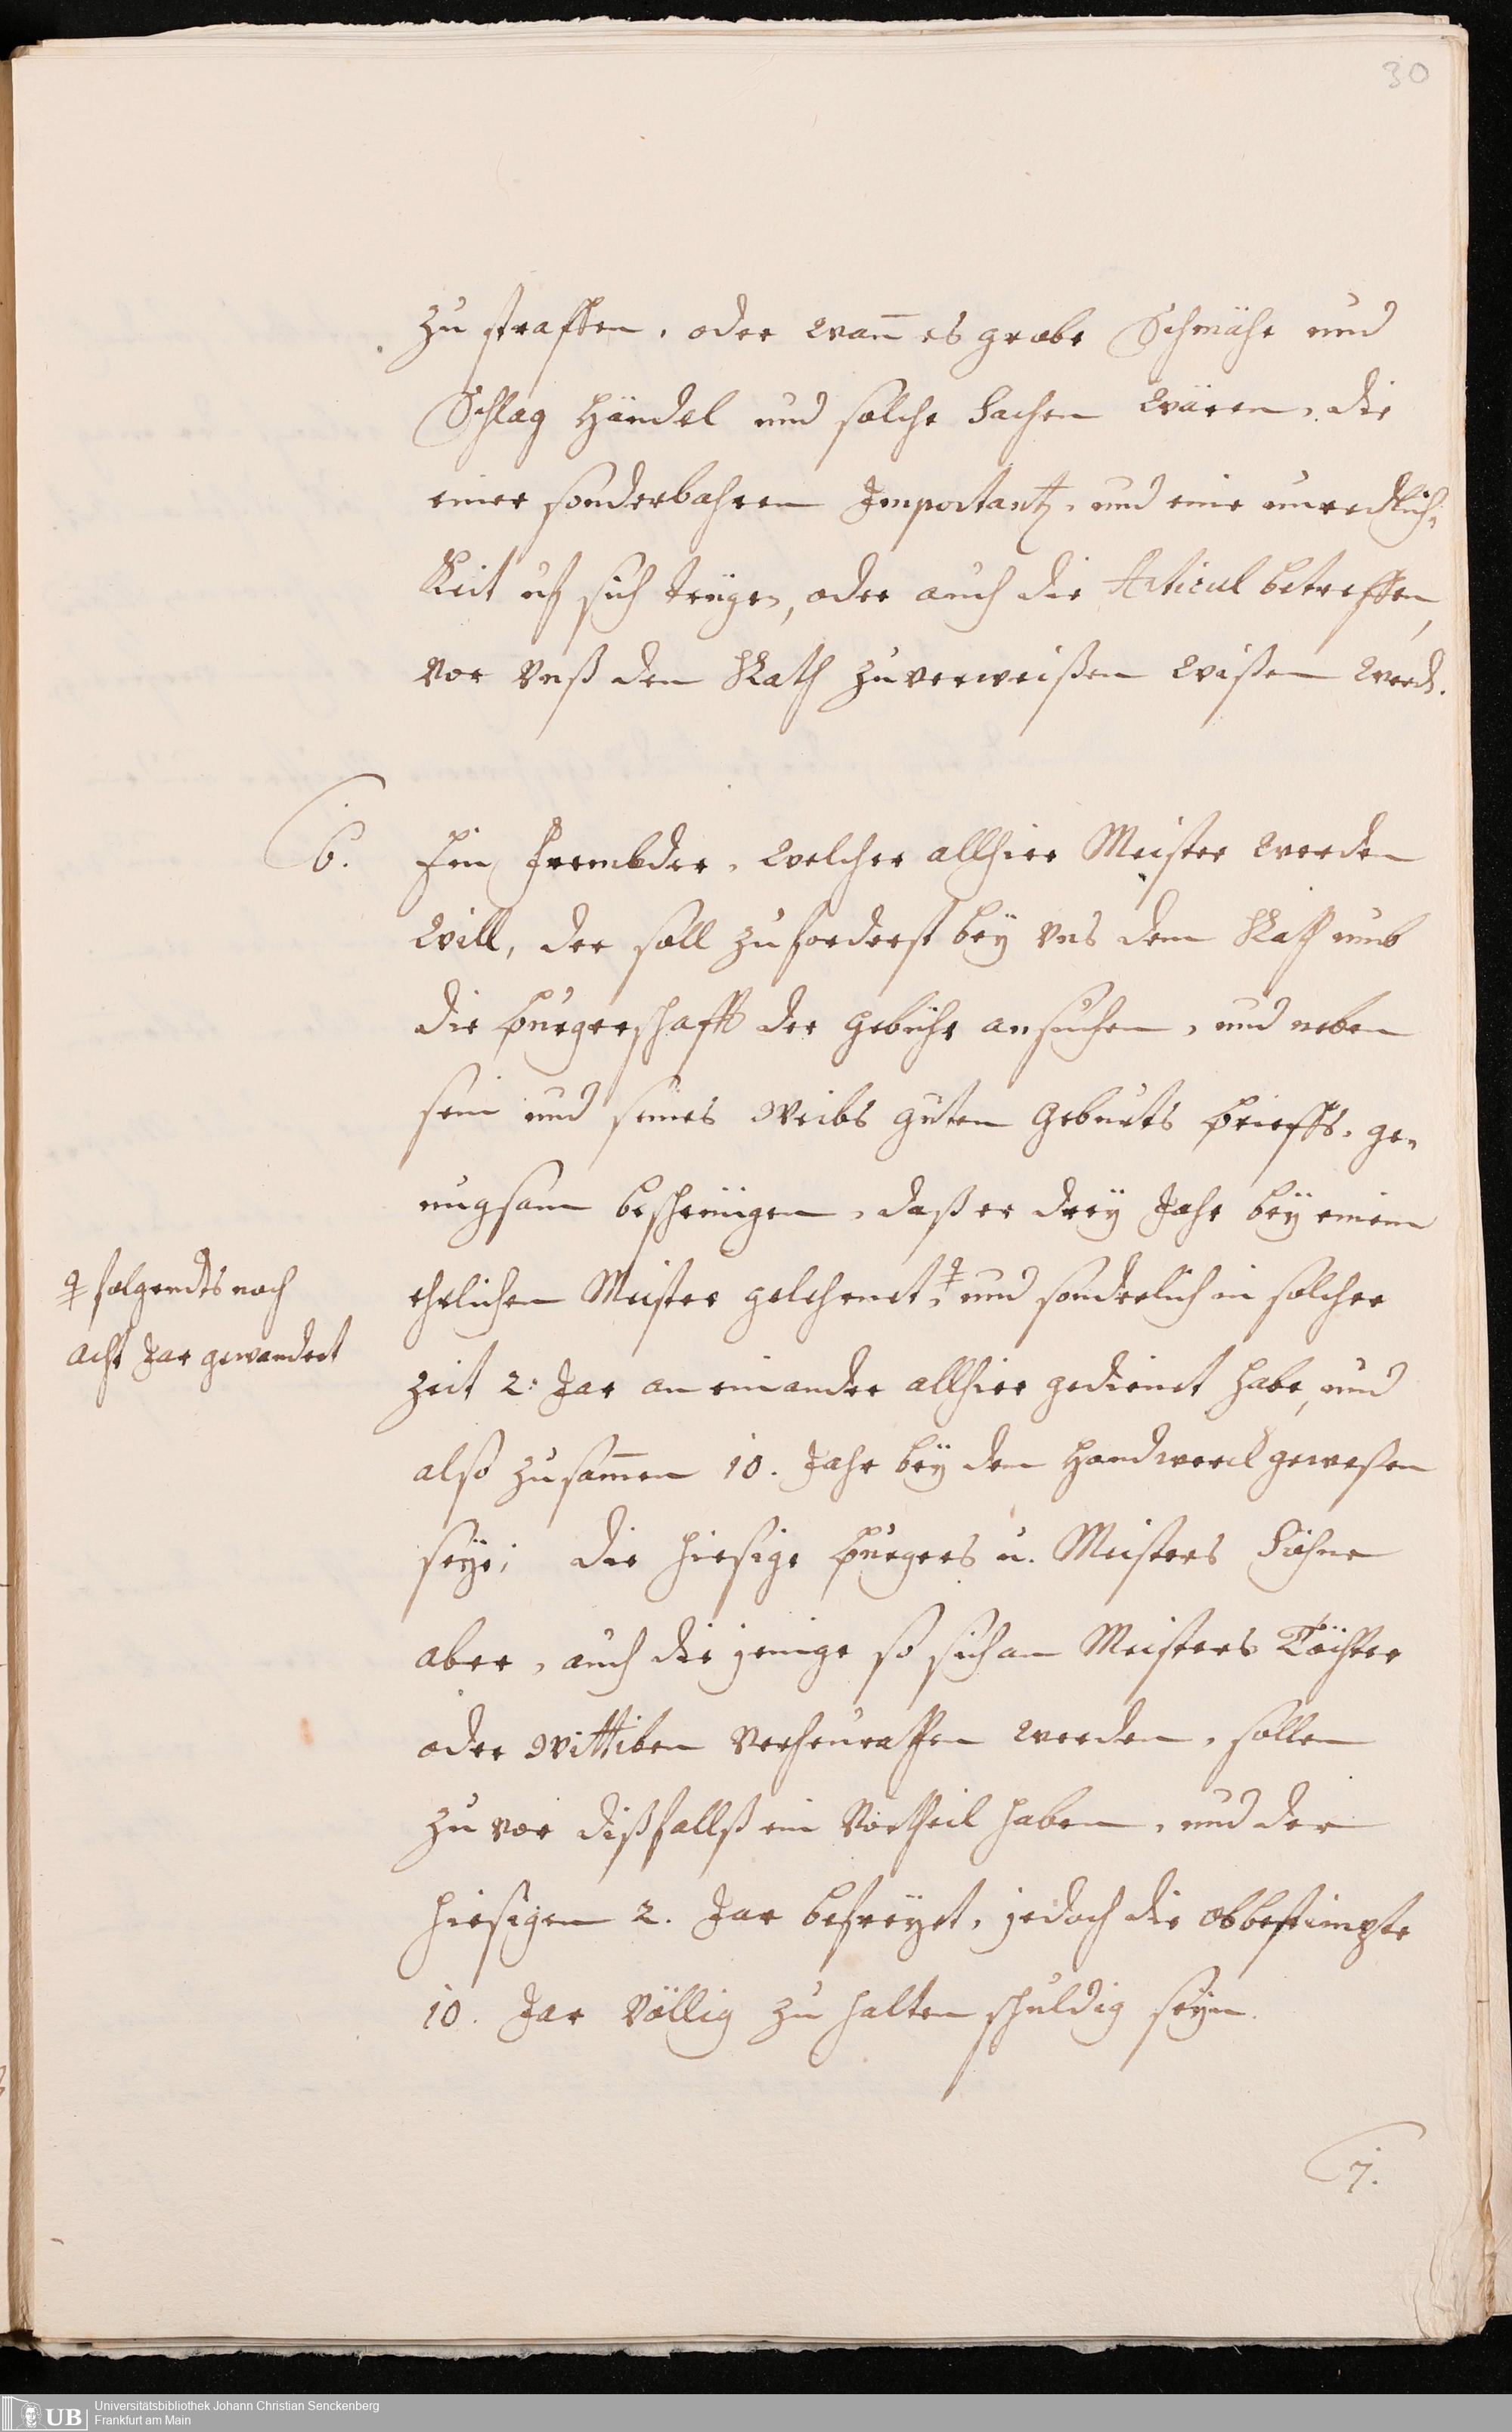 30
zu straffen, oder wan̄ es grobe Schmähe und
Schlag Händel und solche Sachen wären, die
einer sonderbahren Importantz, und eine unredlich-
keit uf sich trügen, oder auch die Articul betreffen,
vor Vnß den Rath zuverweißen wißen werd.
6. Ein Frembder, welcher allhier Meister werden
will, der soll zuforderst bey Vns dem Rath umb
die Burgerschafft der gebühr ansuchen, und neben
sein und seines Weibs guten Geburts Brieffs, ge-
nugsam bescheinigen, daß er drey Jahr bey einem
ehelichen Meister gelehrnet, ♀ und sonderlich in solcher
♀ folgendts noch
acht Jar gewandert
zeit 2: Jar an einander allhier gedienet habe, und
also zusam̄en 10. Jahr bey dem Handwerck gewesen
seye; die hiesige Burgers u. Meisters Söhne
aber, auch die jenige so sich an Meisters Töchter
oder Wittiben verheurathen werden, sollen
zuvor dißfallß ein Vortheil haben, und der
hiesigen 2. Jar befreyet, jedoch die obbestimpte
10. Jar völlig zu halten schuldig seyn.
7.
UB Universitätsbibliothek Johann Christian Senckenberg
Frankfurt am Main